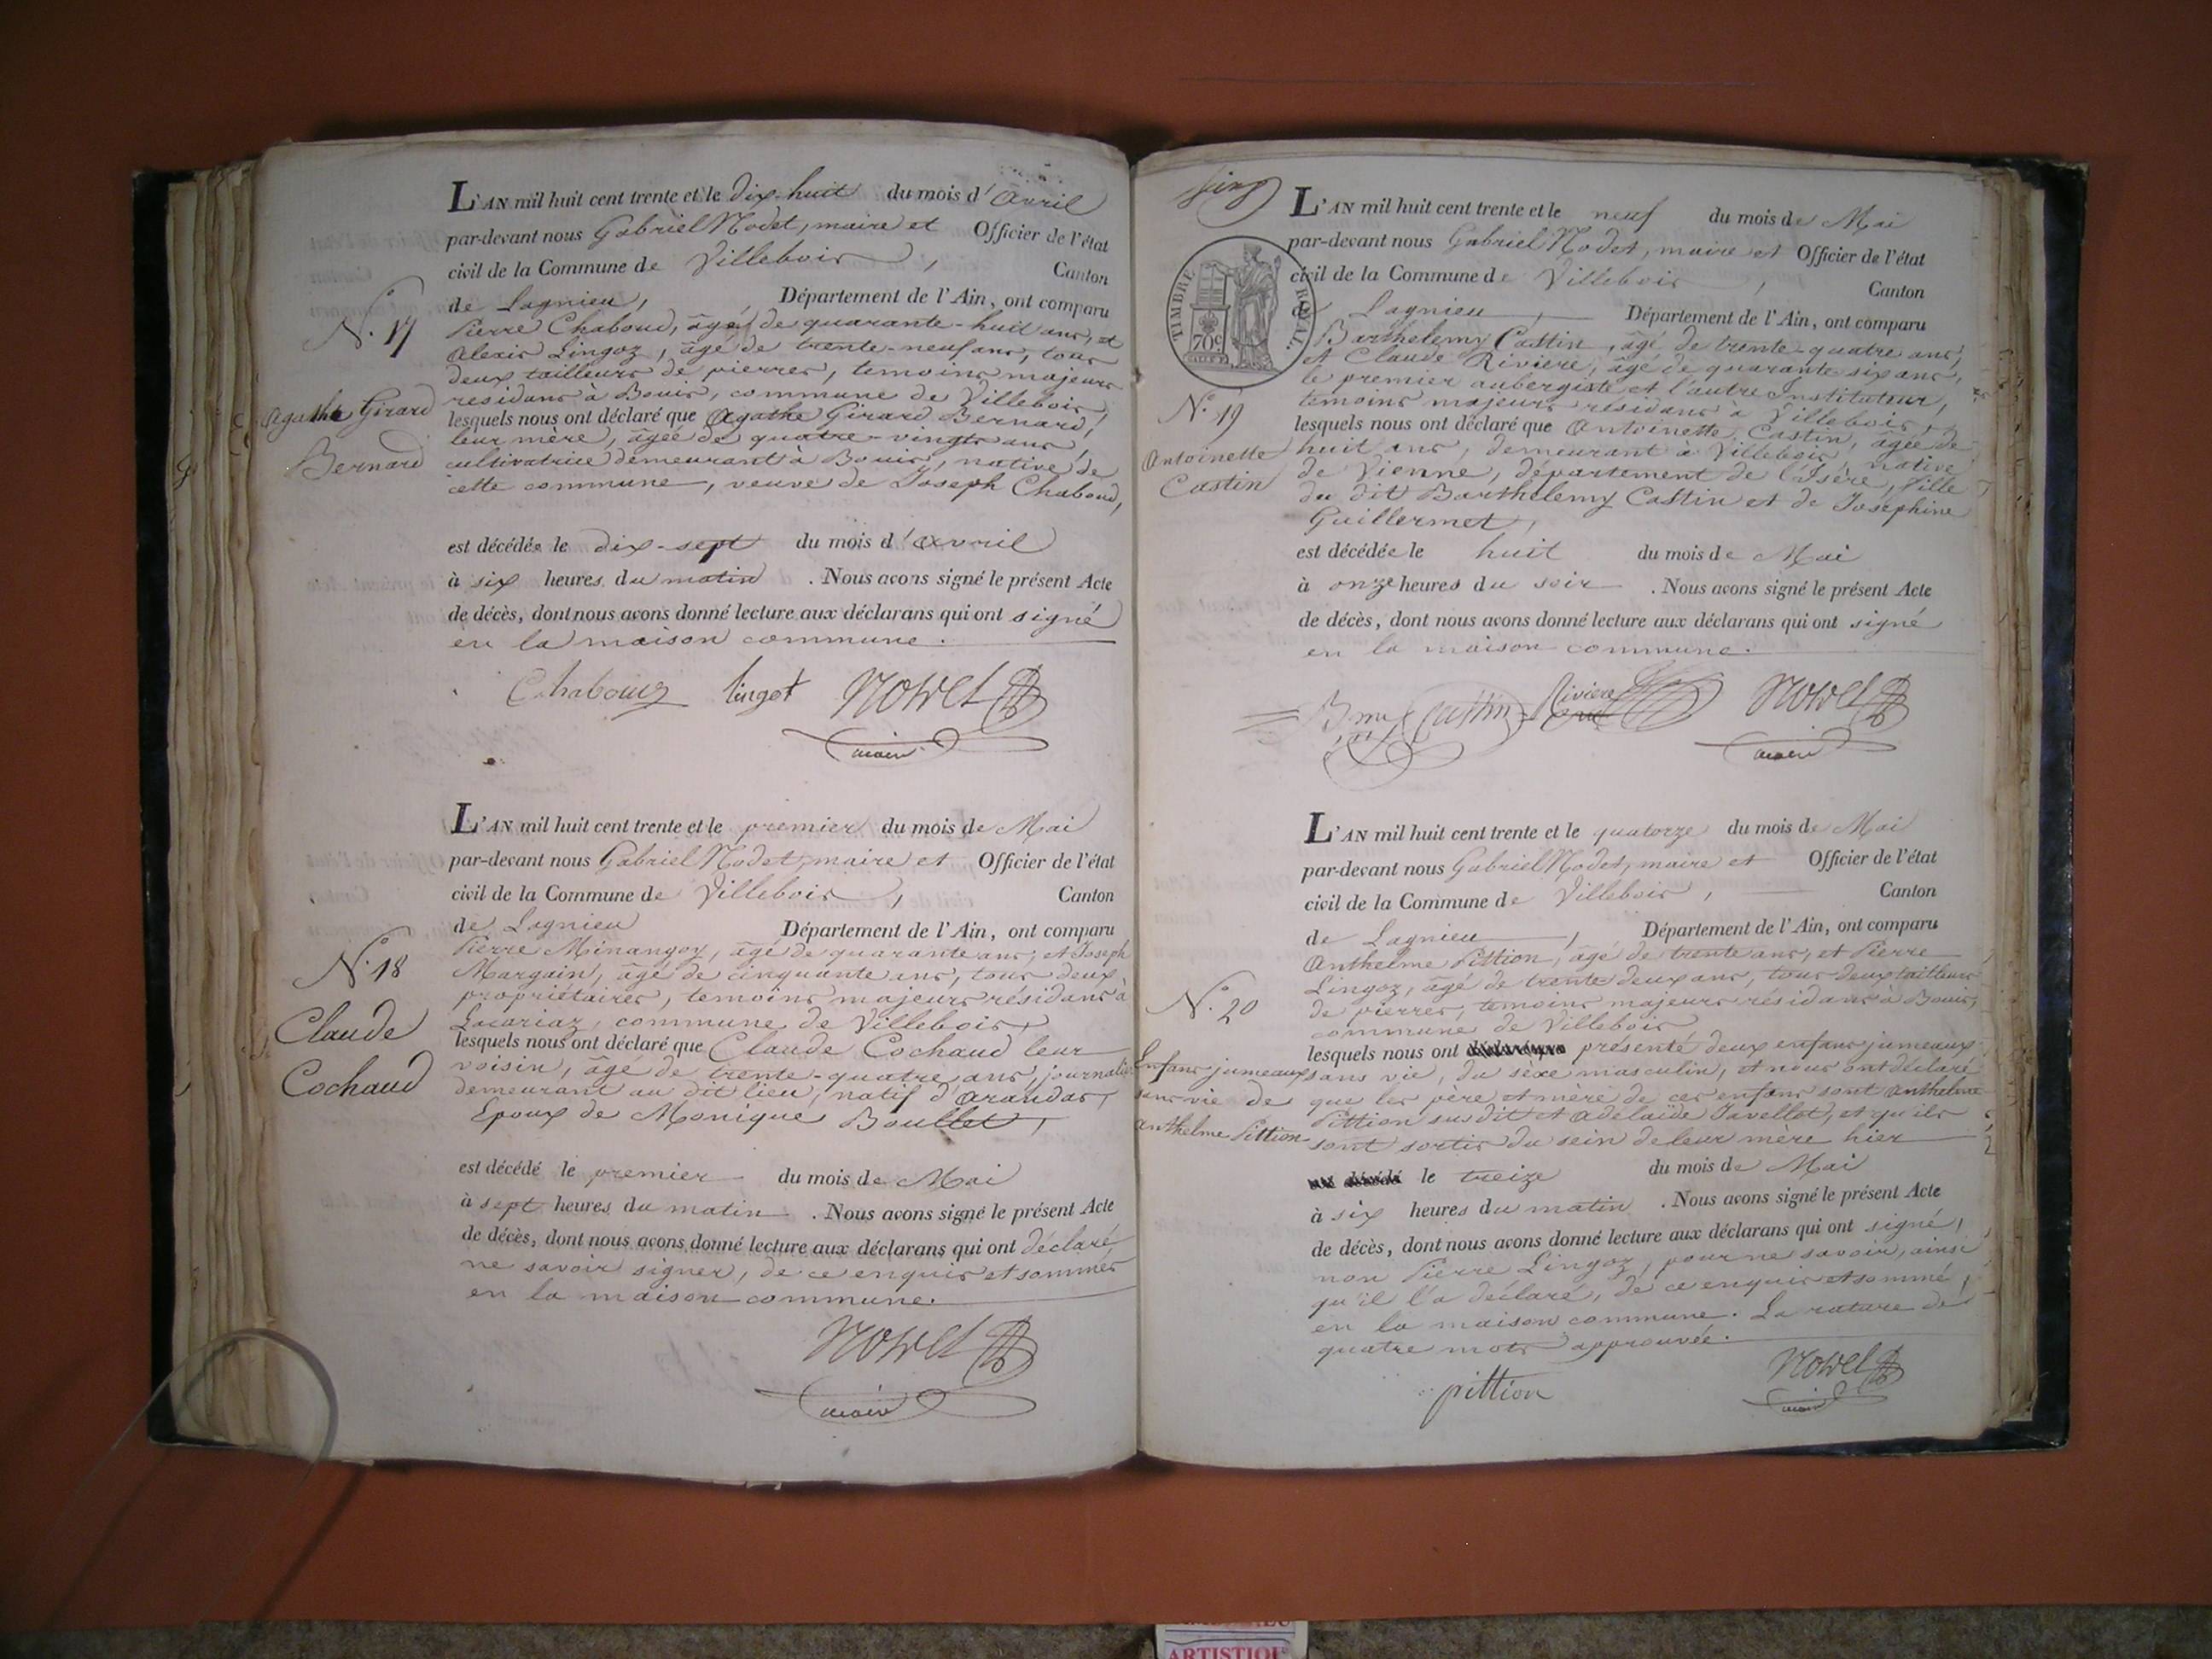 L'AN mil huit cent trente et le dix-huit du mois d'avril
par-devant nous Gabriel Nodet, maire et Officier de l'état
civil de la Commune de Villebois, Canton
de Lagnieu, Département de l'Ain, ont comparu
N.° 17
Pierre Chaboud, âgé de quarante-huit ans, et
Alexis Lingoz, âgé de trente-neuf ans, tous
deux tailleurs de pierres, temoins majeurs
residans à Bouis, commune de Villebois,
Agathe Girard
Bernard
lesquels nous ont déclaré que Agathe Girard Bernard,
leur mère, âgée de quatre-vingts ans,
cultivatrice demeurant à Bouis, native de
cette commune, veuve de Joseph Chaboud,
est décédée le dix-sept du mois d'avril
à six heures du matin. Nous avons signé le présent Acte
de décès, dont nous avons donné lecture aux déclarans qui ont signé
en la maison commune.
Chaboud lingot Nodet
maire
L'AN mil huit cent trente et le premier du mois de Mai
par-devant nous Gabriel Nodet, maire et Officier de l'état
civil de la Commune de Villebois, Canton
de Lagnieu Département de l'Ain, ont comparu
N.° 18
Claude
Cochaud
Pierre Minangoy, âgé de quarante ans, et Joseph
Margain, âgé de cinquante ans, tous deux
propriétaires, temoins majeurs résidans à
Lacariaz, commune de Villebois,
lesquels nous ont déclaré que Claude Cochaud leur
voisin, âgé de trente-quatre ans, journalier
demeurant au dit lieu, natif d'Arandas,
Epoux de Monique Boullet,
est décédé le premier du mois de Mai
à sept heures du matin. Nous avons signé le présent Acte
de décès, dont nous avons donné lecture aux déclarans qui ont déclaré
ne savoir signer, de ce enquis et sommés
en la maison commune.
Nodet
maire
TIMBRE ROYAL
70c
L'AN mil huit cent trente et le neuf du mois de Mai
par-devant nous Gabriel Nodet, maire et Officier de l'état
civil de la Commune de Villebois, Canton
de Lagnieu, Département de l'Ain, ont comparu
Barthelemy Castin, âgé de trente-quatre ans,
et Claude Riviere, âgé de quarante six ans,
le premier aubergiste et l'autre Instituteur,
temoins majeurs résidans à Villebois,
N.° 19
Antoinette
Castin
lesquels nous ont déclaré que Antoinette Castin, âgée de
huit ans, demeurant à Villebois, native
de Vienne, département de l'Isère, fille
du dit Barthelemy Castin et de Josephine
Guillermet,
est décédée le huit du mois de Mai
à onze heures du soir. Nous avons signé le présent Acte
de décès, dont nous avons donné lecture aux déclarans qui ont signé
en la maison commune.
Castin Riviere Nodet
maire
L'AN mil huit cent trente et le quatorze du mois de Mai
par-devant nous Gabriel Nodet, maire et Officier de l'état
civil de la Commune de Villebois, Canton
de Lagnieu, Département de l'Ain, ont comparu
Anthelme Pittion, âgé de trente ans, et Pierre
Lingoz, âgé de trente deux ans, tous deux tailleurs
de pierres, temoins majeurs résidans à Bouis,
commune de Villebois
N.° 20
Enfans jumeaux
sans vie de
Anthelme Pittion
lesquels nous ont présenté deux enfans jumeaux
sans vie, du sèxe masculin, et nous ont déclaré
que les père et mère de ces enfans sont Anthelme
Pittion susdit et Adelaïde Javellot, et qu'ils
sont sortis du sein de leur mère hier
le treize du mois de Mai
à six heures du matin. Nous avons signé le présent Acte
de décès, dont nous avons donné lecture aux déclarans qui ont signé,
non Pierre Lingoz, pour ne savoir, ainsi
qu'il l'a déclaré, de ce enquis et sommé,
en la maison commune. La rature de
quatre mots approuvée.
pittion Nodet
maire
ARTISTIQU